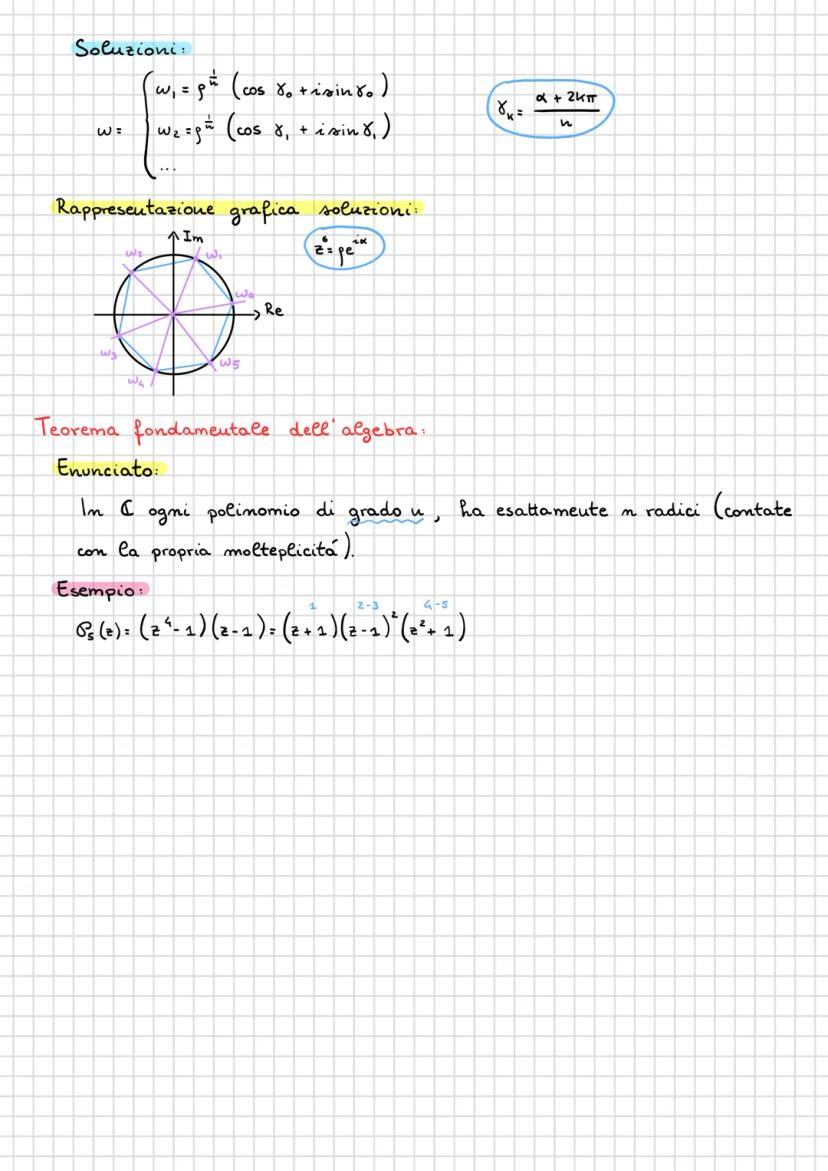 Soluzioni:
w = { w₁ = ρ^(1/n) (cos γ₀ + i sin γ₀)
w₂ = ρ^(1/n) (cos γ₁ + i sin γ₁)
...
γₖ = (α + 2kπ)/n
Rappresentazione grafica soluzioni:
z⁶ = ρe^(iα)
Im
w₂ w₁
w₀
Re
w₃
w₅
w₄
Teorema fondamentale dell'algebra:
Enunciato:
In ℂ ogni polinomio di grado n, ha esattamente n radici (contate
con la propria molteplicitá).
Esempio:
1 2-3 4-5
P₅(z) = (z⁴ - 1)(z - 1) = (z + 1)(z - 1)²(z² + 1)